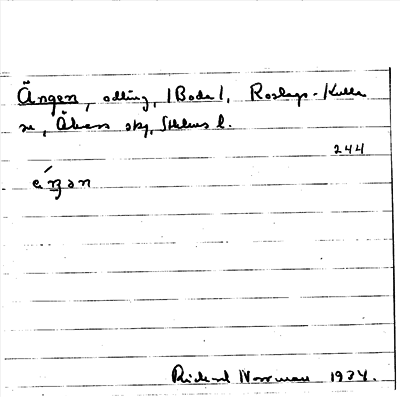 Ängen, odling, (Boda), Roslags-Kulla
sn, Åkers skg, Sthlms l.
244
é̄ŋən
Rickard Norrman 1934.